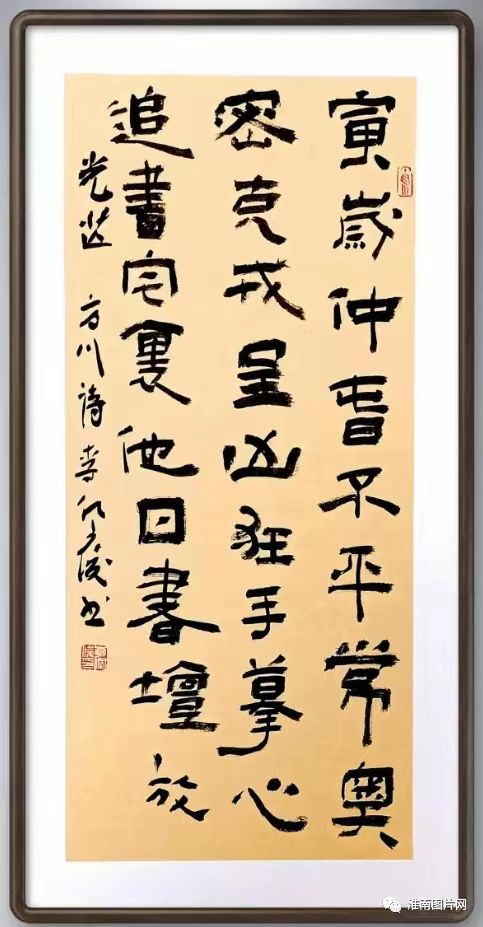 寅歲仲春不平常奥
密克戎呈凶狂手摹心
追書宅裏他日書壇放
光芒 方川詩 李 俊书
淮南图片网